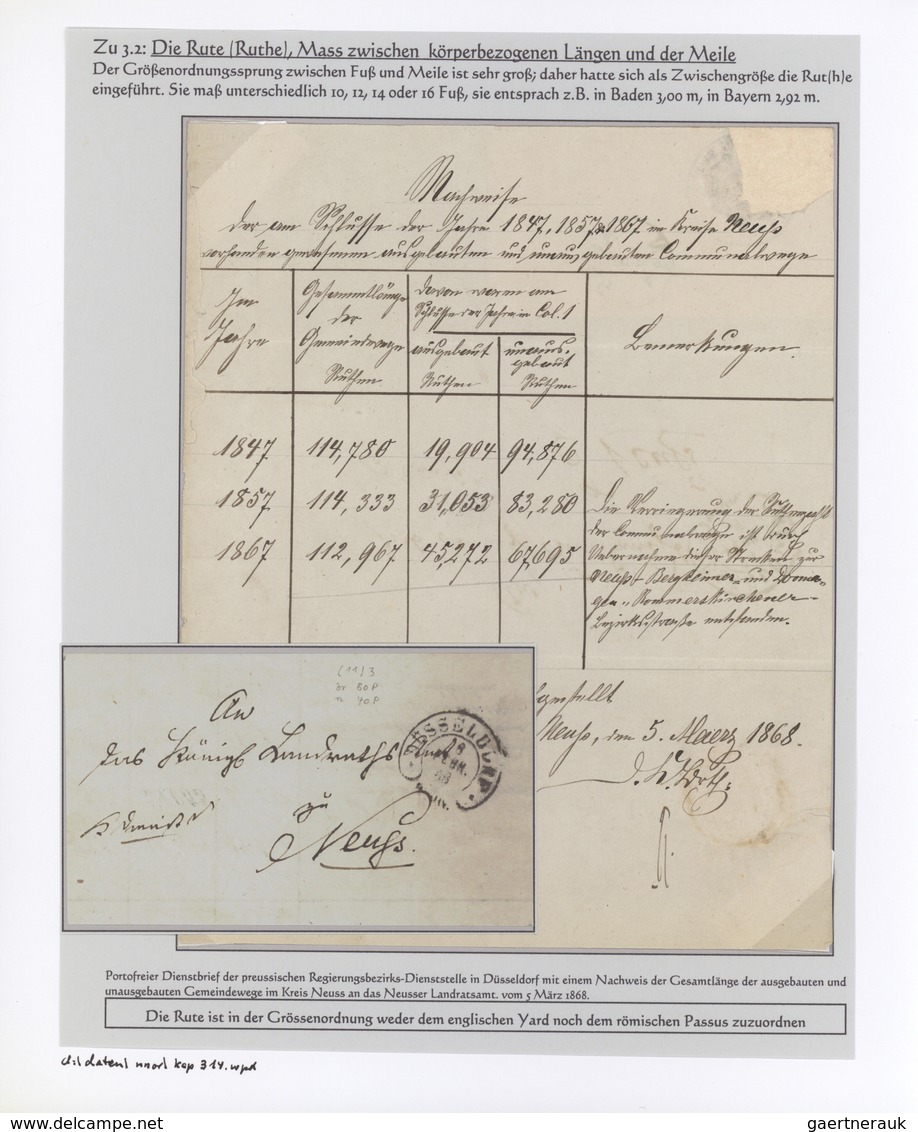 Zu 3.2: Die Rute (Ruthe), Mass zwischen körperbezogenen Längen und der Meile
Der Größenordnungssprung zwischen Fuß und Meile ist sehr groß; daher hatte sich als Zwischengröße die Rut(h)e
eingeführt. Sie maß unterschiedlich 10, 12, 14 oder 16 Fuß, sie entsprach z.B. in Baden 3,00 m, in Bayern 2,92 m.
Nachweise
der am Schlusse der Jahre 1847, 1857 & 1867 im Kreise Neuss
vorhanden gewesenen ausgebauten und unausgebauten Communalwege
Im
Jahre
Gesammtlänge
der
Gemeindewege
Ruthen
davon waren am
Schlusse der Jahre in Col. 1
ausgebaut
Ruthen
unaus-
gebaut
Ruthen
Bemerkungen.
1847 114,780 19,904 94,876
1857 114,333 31,053 83,280
1867 112,967 45,272 67,695
Die Verringerung der Ruthenzahl
der Communalwege ist durch
Uebernahme dieser Strecken zur
Neuss-Bergheimer- und Dorma-
gen-Rommerskirchener-
Bezirksstraße entstanden.
gestellt
Neuss, den 5. Maerz 1868.
(11) 3
50 P
40 P
An
das Königl Landraths
zu
Neuss.
DÜSSELDORF
Portofreier Dienstbrief der preussischen Regierungsbezirks-Dienststelle in Düsseldorf mit einem Nachweis der Gesamtlänge der ausgebauten und
unausgebauten Gemeindewege im Kreis Neuss an das Neusser Landratsamt. vom 5 März 1868.
Die Rute ist in der Grössenordnung weder dem englischen Yard noch dem römischen Passus zuzuordnen
d:\daten\ kap 314.wpd
gaertnerauk